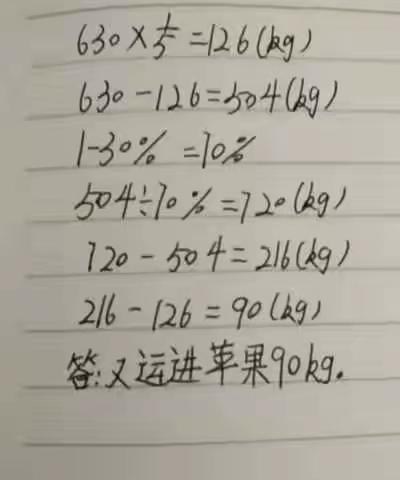 630×1/5=126(kg)
630-126=504(kg)
1-30%=70%
504÷70%=720(kg)
720-504=216(kg)
216-126=90(kg)
答:又运进苹果90kg.